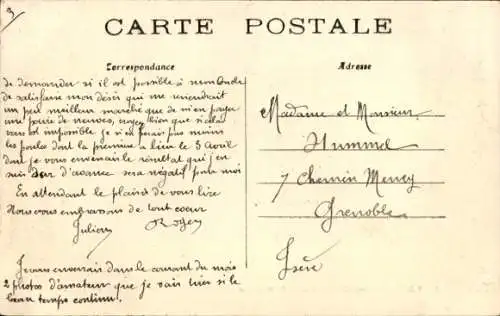 3
CARTE POSTALE
Correspondance
Adresse
de demander si il est possible à mon Oncle
de satisfaire mon désir qui me viendrait
un peu meilleur marché que de m'en payer
une paire de neuves, voyez bien que si cela
vous est impossible je n'en ferais pas moins
les poules dont la première a lieu le 3 Avril
dont je vous enverrai le résultat qui j'en
suis sûr d'avance sera négatif pour moi
En attendant le plaisir de vous lire
Nous vous embrassons de tout coeur
Julien Roger
Je vous enverrais dans le courant du mois
2 photos d'amateur que je vais tirer si le
beau temps continu.
Madame et Monsieur
Hummel
7 Chemin Meney
Grenoble
Isère